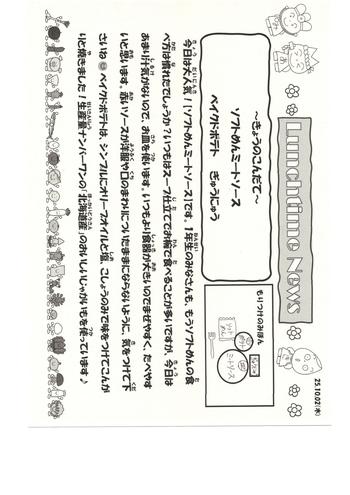 25.10.02(木)
Lunchtime News
～きょうのこんだて～
ソフトめんミートソース
ベイクドポテト　ぎゅうにゅう
もりつけのみほん
ソフトめん
ポテト
ミートソース
今日は大人気！「ソフトめんミートソース」です。1年生のみなさんも、もうソフトめんの食
べ方は慣れたでしょうか？いつもはスープ仕立てでお椀で食べることが多いですが、今日は
あまり汁気がないので、お皿を使います。いつもより食器が大きいのでまぜやすく、たべやす
いと思います。赤いソースが洋服や口のまわりについたままにならないように、気をつけて下
さいね☺ベイクドポテトは、シンプルにオリーブオイルと塩、こしょうのみで味をつけてこんが
りと焼きました！生産量ナンバーワンの「北海道産」のおいしいじゃがいもを使っています♪